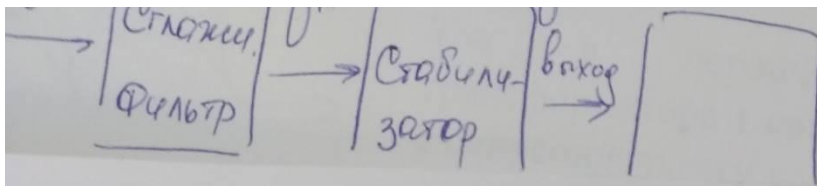 Сглажи.
Фильтр
U
Стабили-
затор
U
выход